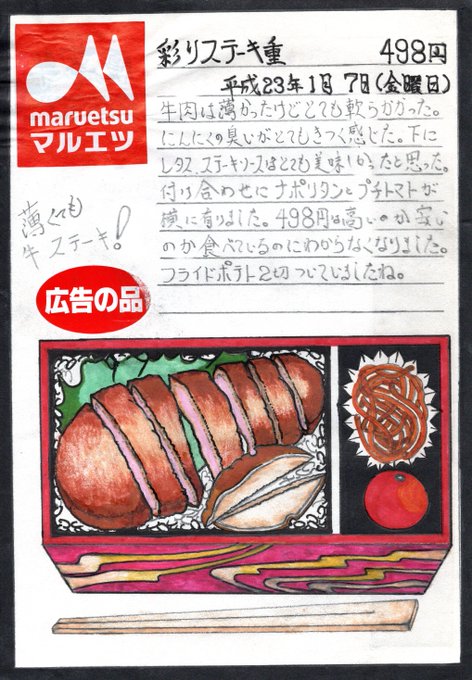 maruetsu
マルエツ
彩りステーキ重 498円
平成23年1月7日(金曜日)
牛肉は薄かったけどとても軟らかかった。
にんにくの臭いがとてもきつく感じた。下に
レタス、ステーキソースはとても美味しかったと思った。
付け合わせにナポリタンとプチトマトが
横に有りました。498円は高いのか安い
のか食べているのにわからなくなりました。
フライドポテト2切ついていましたね。
薄くても
牛ステーキ!
広告の品